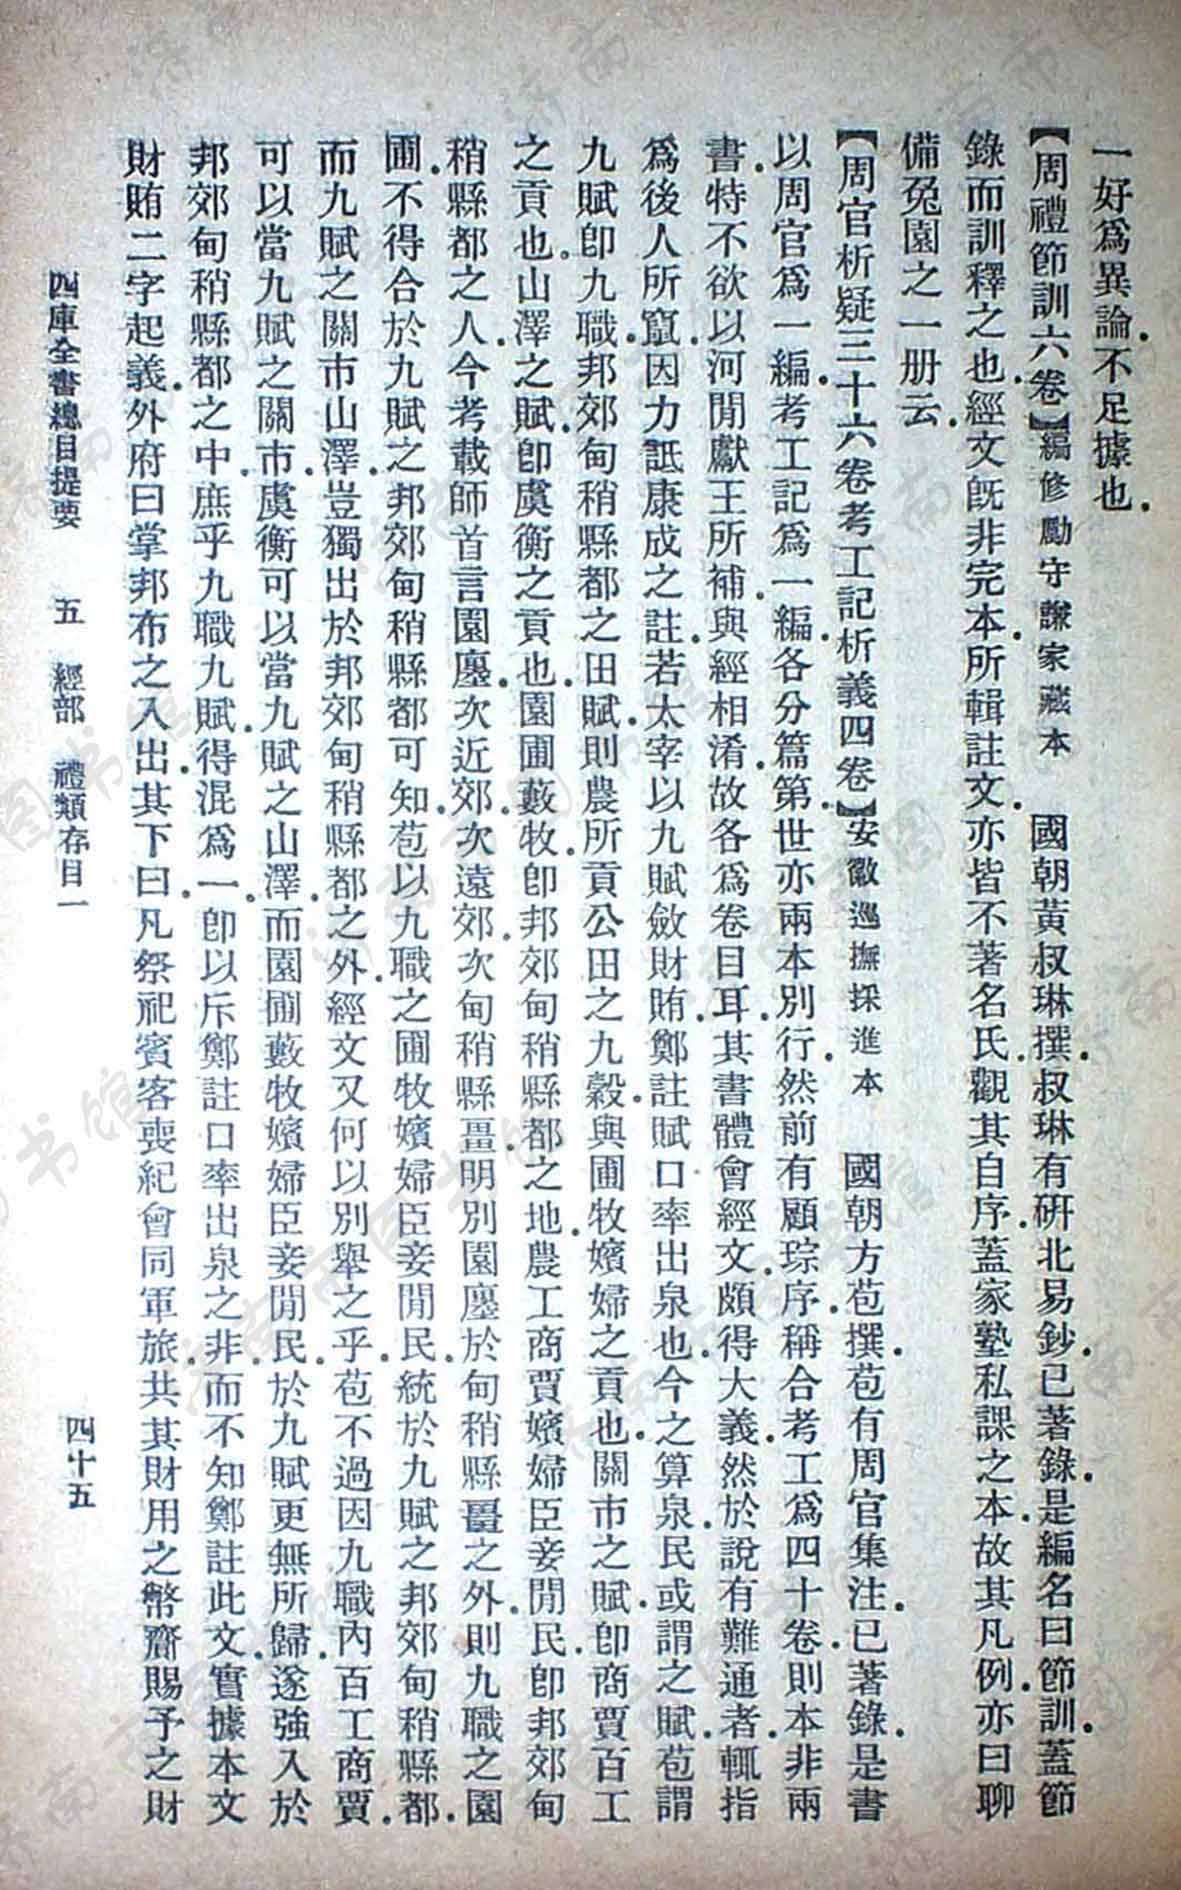 一好爲異論.不足據也.
【周禮節訓六卷】編修勵守謙家藏本　國朝黃叔琳撰.叔琳有硏北易鈔.已著錄.是編名曰節訓.蓋節
錄而訓釋之也.經文旣非完本.所輯註文.亦皆不著名氏.觀其自序.蓋家塾私課之本.故其凡例.亦曰聊
備兔園之一册云.
【周官析疑三十六卷考工記析義四卷】安徽巡撫採進本　國朝方苞撰.苞有周官集注.已著錄.是書
以周官爲一編.考工記爲一編.各分篇第.世亦兩本別行.然前有顧琮序.稱合考工爲四十卷.則本非兩
書.特不欲以河閒獻王所補.與經相淆.故各爲卷目耳.其書體會經文.頗得大義.然於說有難通者.輒指
爲後人所竄.因力詆康成之註.若太宰以九賦斂財賄.鄭註賦口率出泉也.今之算泉.民或謂之賦.苞謂
九賦卽九職.邦郊甸稍縣都之田賦.則農所貢公田之九穀.與圃牧嬪婦之貢也.關市之賦.卽商賈百工
之貢也.山澤之賦.卽虞衡之貢也.園圃藪牧.卽邦郊甸稍縣都之地.農工商賈嬪婦臣妾閒民.卽邦郊甸
稍縣都之人.今考載師首言園廛.次近郊.次遠郊.次甸稍縣畺.明別園廛於甸稍縣畺之外.則九職之園
圃.不得合於九賦之邦郊甸稍縣都可知.苞以九職之圃牧嬪婦臣妾閒民.統於九賦之邦郊甸稍縣都.
而九賦之關市山澤.豈獨出於邦郊甸稍縣都之外.經文又何以別舉之乎.苞不過因九職內百工商賈.
可以當九賦之關市.虞衡可以當九賦之山澤.而園圃藪牧嬪婦臣妾閒民.於九賦更無所歸.遂強入於
邦郊甸稍縣都之中.庶乎九職九賦.得混爲一.卽以斥鄭註口率出泉之非.而不知鄭註此文.實據本文
財賄二字起義.外府曰掌邦布之入出.其下曰.凡祭祀賓客喪紀會同軍旅.共其財用之幣齎賜予之財
四庫全書總目提要　五　經部　禮類存目一　四十五